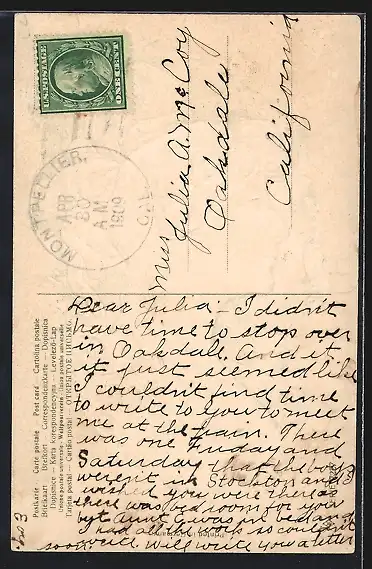 U.S. POSTAGE
ONE CENT
MONTPELLIER, CAL.
APR
20
A M
1909
Miss Julia A. McCoy
Oakdale
California
Postkarte — Carte postale — Post card — Cartolina postale
Briefkaart — Brefkort — Correspondenzkarte — Dopisnica
Dopisnice — Karta korespondencyjna — Levelező-Lap
Union postale universelle — Weltpostverein — Unione postale universale
Tarjeta postal — Cartão postal — ОТКРЫТОЕ ПИСЬМО.
Dear Julia:- I didn't
have time to stop over
in Oakdale. And it
it just seemed like
I couldn't find time
to write to you to meet
me at the train. There
was one Friday and
Saturday that the boys
weren't in Stockton and I
wished you were there as
there was bed room for you
but Aunt E was in bed and
I had all the work so couldn't
write. Will write you a letter
soon.